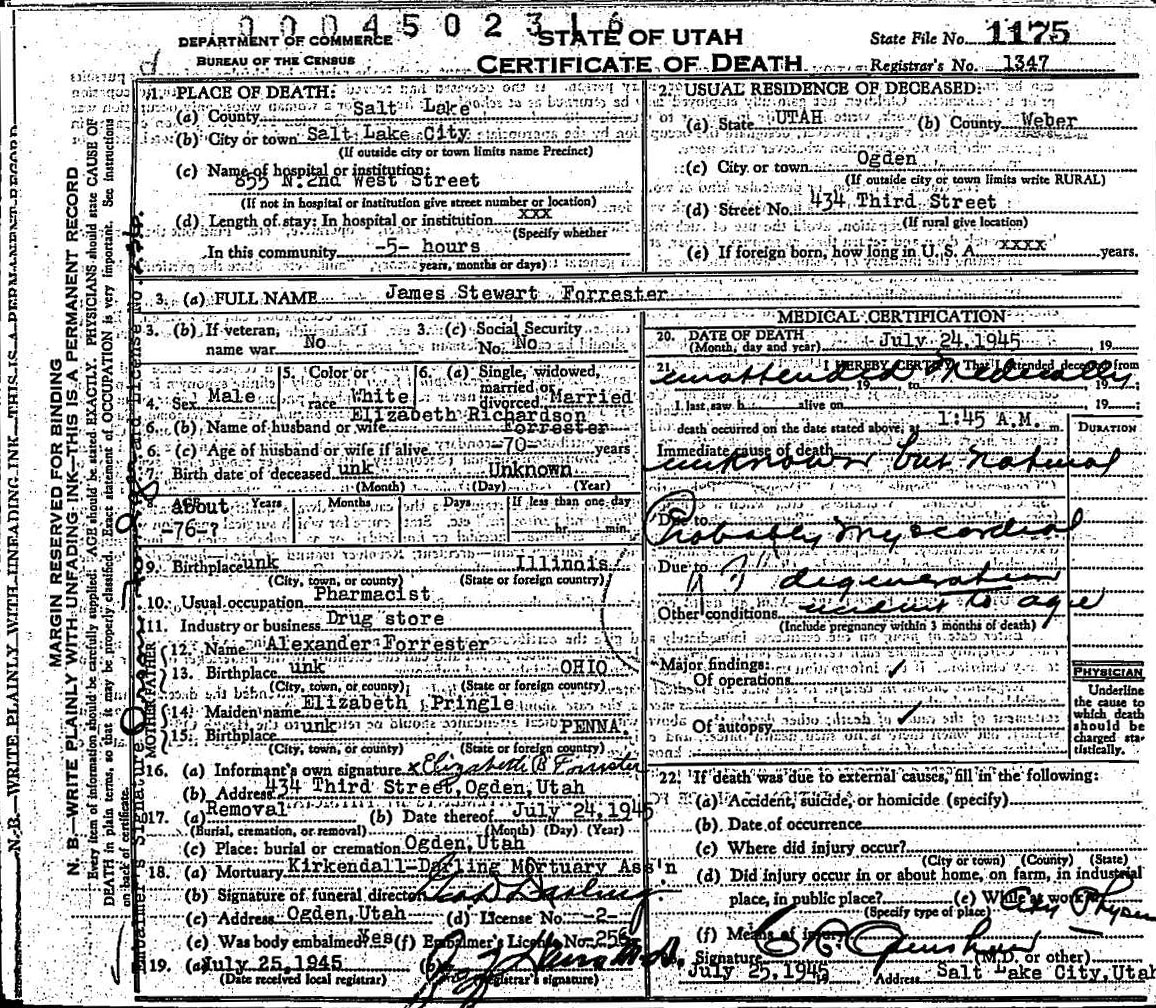 00045023 16
DEPARTMENT OF COMMERCE
BUREAU OF THE CENSUS
STATE OF UTAH
CERTIFICATE OF DEATH
State File No. 1175
Registrar's No. 1347
1. PLACE OF DEATH:
(a) County Salt Lake
(b) City or town Salt Lake City
(If outside city or town limits name Precinct)
(c) Name of hospital or institution:
855 N. 2nd West Street
(If not in hospital or institution give street number or location)
(d) Length of stay: In hospital or institution xxx
(Specify whether
In this community -5- hours
years, months or days)
2. USUAL RESIDENCE OF DECEASED:
(a) State UTAH (b) County Weber
(c) City or town Ogden
(If outside city or town limits write RURAL)
(d) Street No. 434 Third Street
(If rural give location)
(e) If foreign born, how long in U. S. A. xxxx years.
3. (a) FULL NAME James Stewart Forrester
3. (b) If veteran, name war No
3. (c) Social Security No. No
4. Sex Male
5. Color or race White
6. (a) Single, widowed, married or divorced Married
6. (b) Name of husband or wife Elizabeth Richardson Forrester
6. (c) Age of husband or wife if alive -70- years
7. Birth date of deceased unk Unknown
(Month) (Day) (Year)
8. AGE Years Months Days If less than one day
About -76-? hr. min.
9. Birthplace unk Illinois
(City, town, or county) (State or foreign country)
10. Usual occupation Pharmacist
11. Industry or business Drug store
FATHER
12. Name Alexander Forrester
13. Birthplace unk OHIO
(City, town, or county) (State or foreign country)
MOTHER
14. Maiden name Elizabeth Pringle
15. Birthplace unk PENNA.
(City, town, or county) (State or foreign country)
16. (a) Informant's own signature x Elizabeth B Forrester
(b) Address 434 Third Street, Ogden, Utah
17. (a) Removal (b) Date thereof July 24, 1945
(Burial, cremation, or removal) (Month) (Day) (Year)
(c) Place: burial or cremation Ogden, Utah
18. (a) Mortuary Kirkendall-Darling Mortuary Ass'n
(b) Signature of funeral director Darling
(c) Address Ogden, Utah (d) License No. -2-
(e) Was body embalmed? Yes (f) Embalmer's License No. 256
19. (a) July 25, 1945 (b) M.D.
(Date received local registrar) (Registrar's signature)
MEDICAL CERTIFICATION
20. DATE OF DEATH
(Month, day and year) July 24, 1945, 19
21. I HEREBY CERTIFY That I attended deceased from
unattended medically
19 to 19
I last saw h alive on , 19
death occurred on the date stated above, at 1:45 A.M. m.
DURATION
Immediate cause of death
unknown but natural
Due to
Probably myocardial
Due to degeneration
Other conditions to age
(Include pregnancy within 3 months of death)
Major findings:
Of operations ✓
Of autopsy ✓
PHYSICIAN
Underline
the cause to
which death
should be
charged sta-
tistically.
22. If death was due to external causes, fill in the following:
(a) Accident, suicide, or homicide (specify)
(b) Date of occurrence
(c) Where did injury occur?
(City or town) (County) (State)
(d) Did injury occur in or about home, on farm, in industrial
place, in public place? (e) While at work?
(Specify type of place) City Physn
(f) Means of injury
Signature (M.D. or other)
July 25, 1945 19 Address Salt Lake City, Utah
N. B.—WRITE PLAINLY WITH UNFADING INK—THIS IS A PERMANENT RECORD
MARGIN RESERVED FOR BINDING
N. B.—WRITE PLAINLY WITH UNFADING INK—THIS IS A PERMANENT RECORD
Every item of information should be carefully supplied. AGE should be stated EXACTLY. PHYSICIANS should state CAUSE OF
DEATH in plain terms, so that it may be properly classified. Exact statement of OCCUPATION is very important. See instructions
on back of certificate.
Embalmer's Signature License No. 256